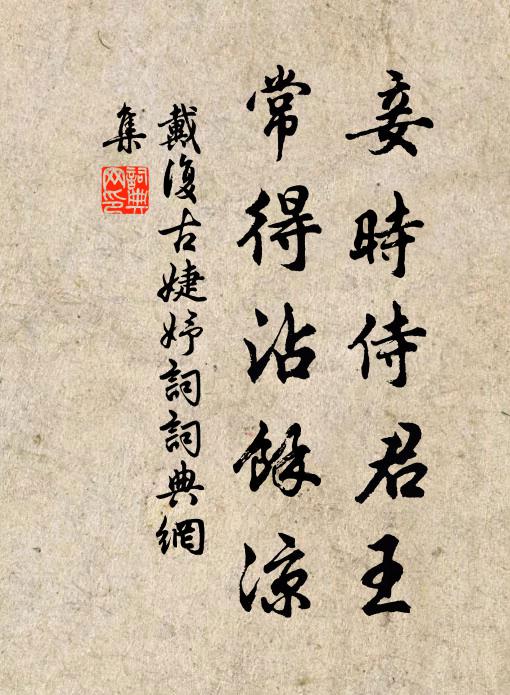 妾時侍君王
常得沾餘涼
戴復古婕妤詞詞典網
集
詞典网印